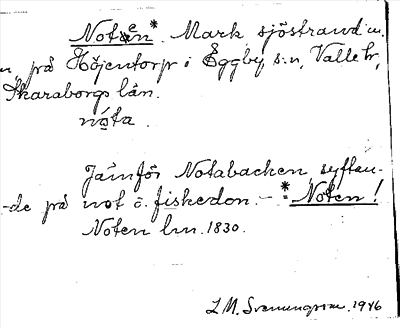 Noten*. Mark sjöstrand u.
n på Höjentorp i Eggby s:n, Valle hr,
Skaraborgs län.
nóta.
Jämför Notabacken syftan-
-de på not ɔ. fiskedon. – *Noten!
Noten lm. 1830.
L.M. Svenungsson. 1946